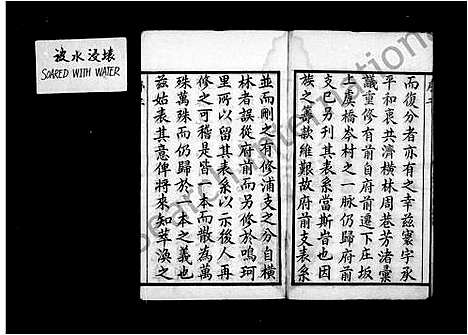 被水浸壊
SOAKED WITH WATER
而復分者亦有之幸茲寰宇承
平和衷共濟橫林周巷芳渚彙
議重修有前自府前遷下庄坂
上虞橋岑村之一脉仍歸府前
支已另刊其表系當斯旹也因
族之籌款維艱故府前支表系
並而刪之有修浦支之分自橫
林者誤從府前而另修於鳴珂
里所以留其表系以示後人再
修之可稽是皆一本而散為萬
殊萬殊而仍歸於一本之義也
茲姑表其意俾將來知萃渙之